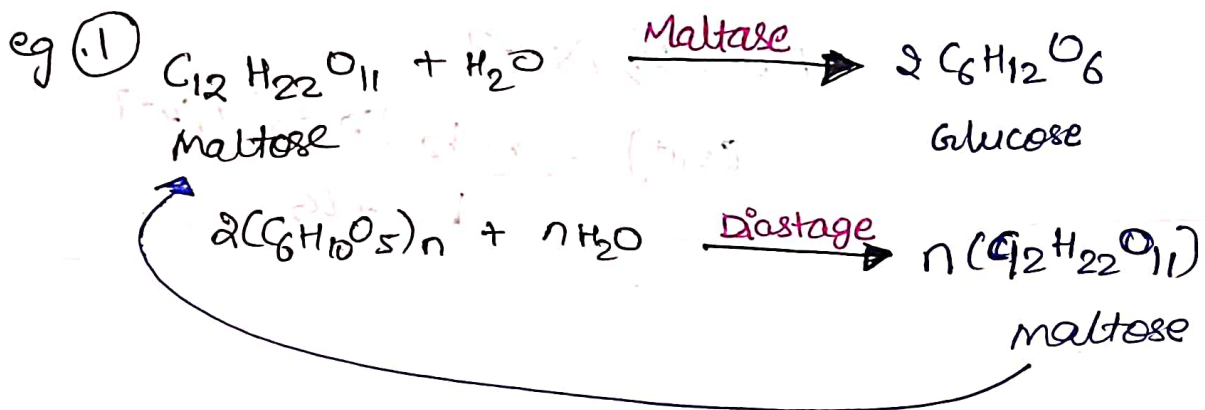 eg (.1) C12 H22 O11 + H2O Maltase → 2 C6H12O6
Maltose Glucose
2(C6H10O5)n + nH2O Diastage → n(C12H22O11)
maltose